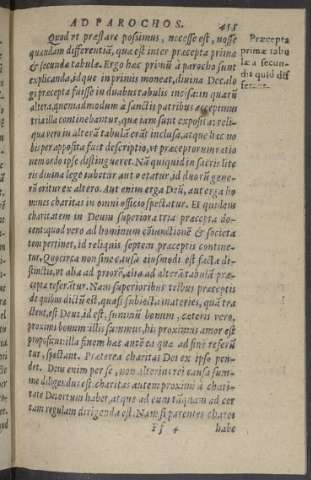 AD PAROCHOS. 455
Quod vt præstare possimus, necesse est, nosse
quandam differentiã, quæ est inter præcepta primæ
& secundæ tabulæ. Ergo hæc primũ à parocho sunt
explicanda, atque in primis moneat, diuina Decalo
gi præcepta fuisse in duabus tabulis incisa: in quarũ
altera, quemadmodum à sanctis patribus accepimus
tria illa continebantur, quæ iam sunt exposita: reli-
qua vero in alterã tabulã erãt inclusa. atque hæc no
bis per apposita fuit descriptio, vt præceptorum ratio
nem ordo ipse distingueret. Nã quiquid in sacris lite
ris diuina lege iubetur aut vetatur, id duorũ gene
rũ oritur ex altero. Aut enim erga Deũ, aut erga ho
mines charitas in omni officio spectatur. Et quidem
charitatem in Deum superiora tria præcepta do-
cent: quod vero ad hominum cõiunctionẽ & societa
tem pertinet, id reliquis septem præceptis contine-
tur. Quocirca non sine causa eiusmodi est facta di-
stinctio, vt alia ad priorẽ, alia ad alterã tabulã præ-
cepta referãtur. Nam superioribus tribus præceptis
de quibus dictũ est, quasi subiecta materies, quã tra
ctent, est Deus id est, summũ bonum, cæteris vero,
proximi bonum: illis summus, his proximus amor est
propositus: illa finem hæc autẽ ea quæ ad finẽ referũ
tur, spectant. Præterea charitas Dei ex ipso pen-
det. Deus enim per se, non alterius rei causa sum-
me diligendus est: charitas autem proximi à chari-
tate Dei ortum habet, atque ad eam tãquam ad cer
tam regulam dirigenda est. Nam si parentes charos
ff 4 habe
Præcepta
primæ tabu
læ a secun-
dæ quid dif
ferant.